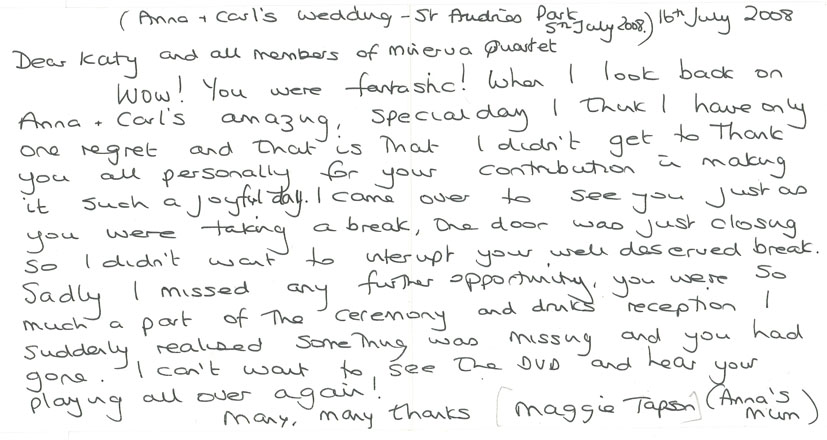 (Anna + Carl's wedding - St Audries Park 5th July 2008.) 16th July 2008
Dear Katy and all members of Minerva Quartet
Wow! You were fantastic! When I look back on
Anna + Carl's amazing, special day I think I have only
one regret and that is that I didn't get to thank
you all personally for your contribution in making
it such a joyful day. I came over to see you just as
you were taking a break, the door was just closing
so I didn't want to interupt your well deserved break.
Sadly I missed any further opportunity, you were so
much a part of the ceremony and drinks reception I
suddenly realised something was missing and you had
gone. I can't wait to see the DVD and hear your
playing all over again!
Many, many thanks [Maggie Tapson] (Anna's mum)